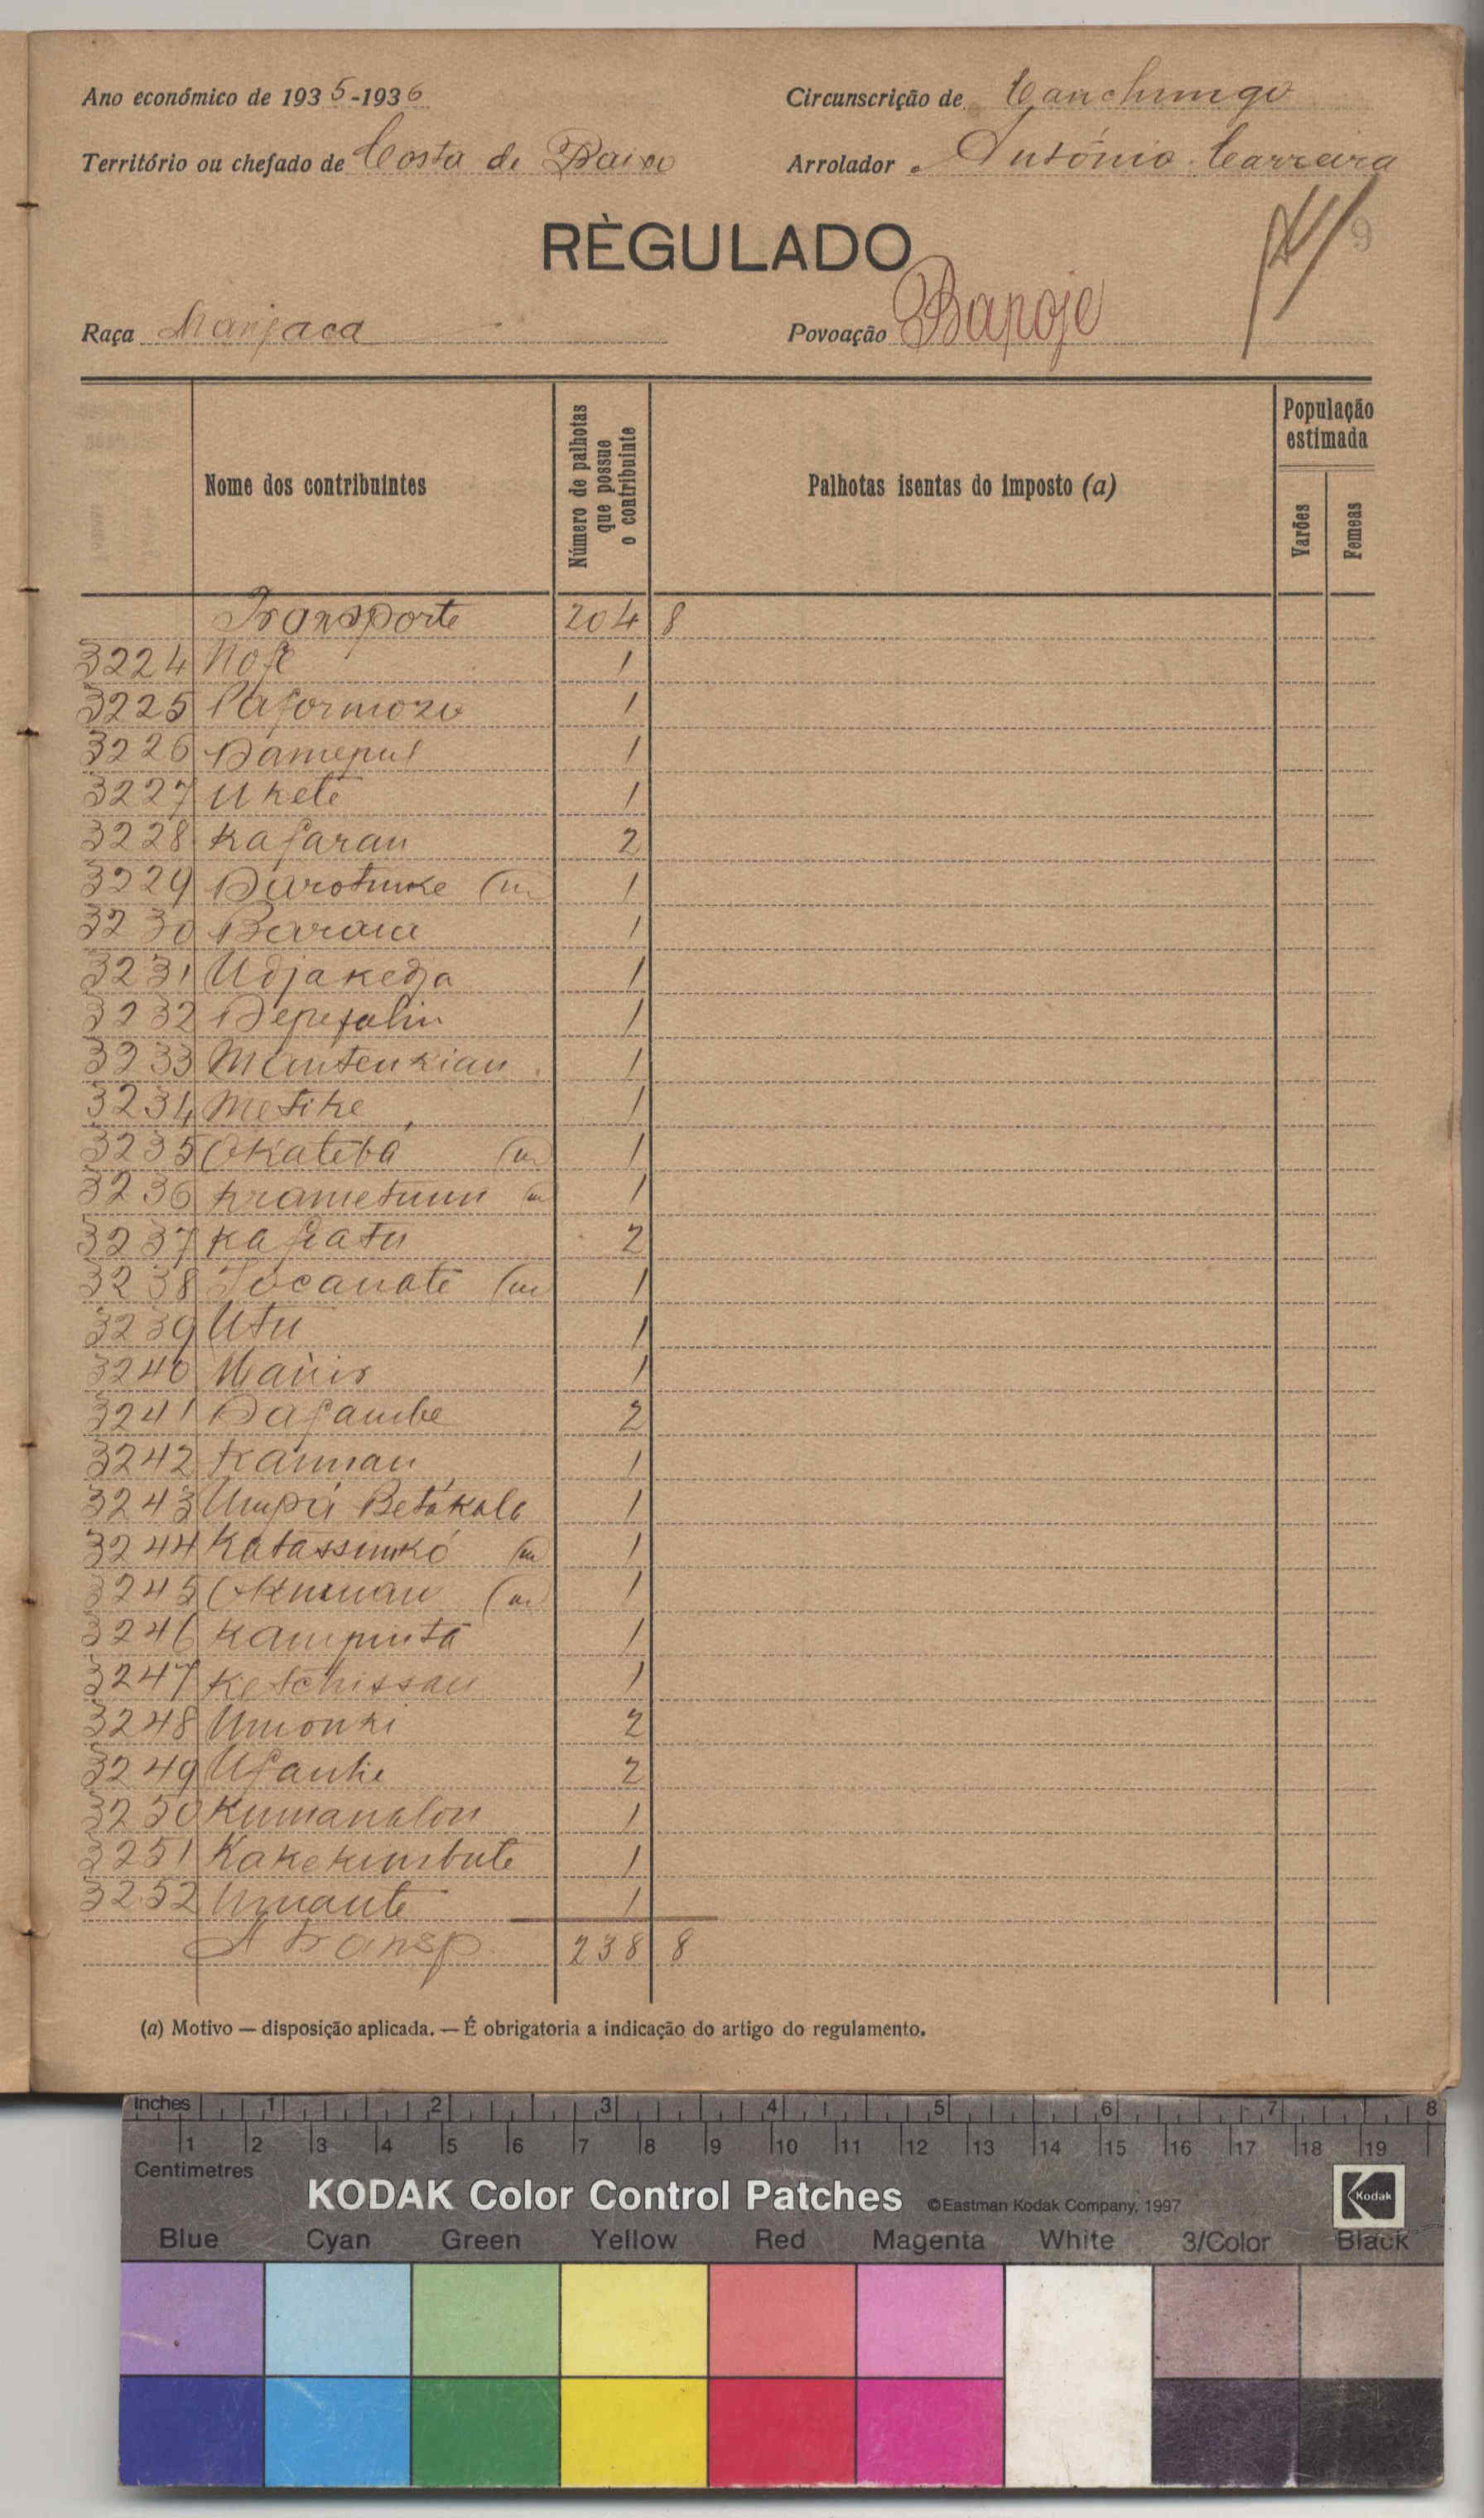 Ano económico de 1935-1936 Circunscrição de Canchungo
Território ou chefado de Costa de Baixo Arrolador António Carreira
RÈGULADO
9
Raça Manjaca Povoação Bapoje
Nome dos contribuintes Número de palhotas que possue o contribuinte Palhotas isentas do imposto (a) População estimada Varões Femeas
Transporte 204 8
3224 1
3225 Paformozo 1
3226 Damepul 1
3227 Ukete 1
3228 Kafaran 2
3229 (m 1
3230 Baraia 1
3231 Udjakedja 1
3232 1
3233 Mantenkian 1
3234 Metike 1
3235 Okatebá (m) 1
3236 Krametumu (m) 1
3237 Kafiatu 2
3238 Tocanate (m) 1
3239 Utu 1
3240 1
3241 Dafambe 2
3242 Kamian 1
3243 Umpú Betákale 1
3244 Katassunkó (m) 1
3245 (m) 1
3246 Kampintá 1
3247 Ketchissau 1
3248 Umonki 2
3249 Ufanke 2
3250 Kumanalon 1
3251 Kakekumbute 1
3252 Umante 1
A transp. 238 8
(a) Motivo — disposição aplicada. — É obrigatoria a indicação do artigo do regulamento.
Inches 1 2 3 4 5 6 7 8
1 2 3 4 5 6 7 8 9 10 11 12 13 14 15 16 17 18 19
Centimetres
KODAK Color Control Patches ©Eastman Kodak Company, 1997 Kodak
Blue Cyan Green Yellow Red Magenta White 3/Color Black